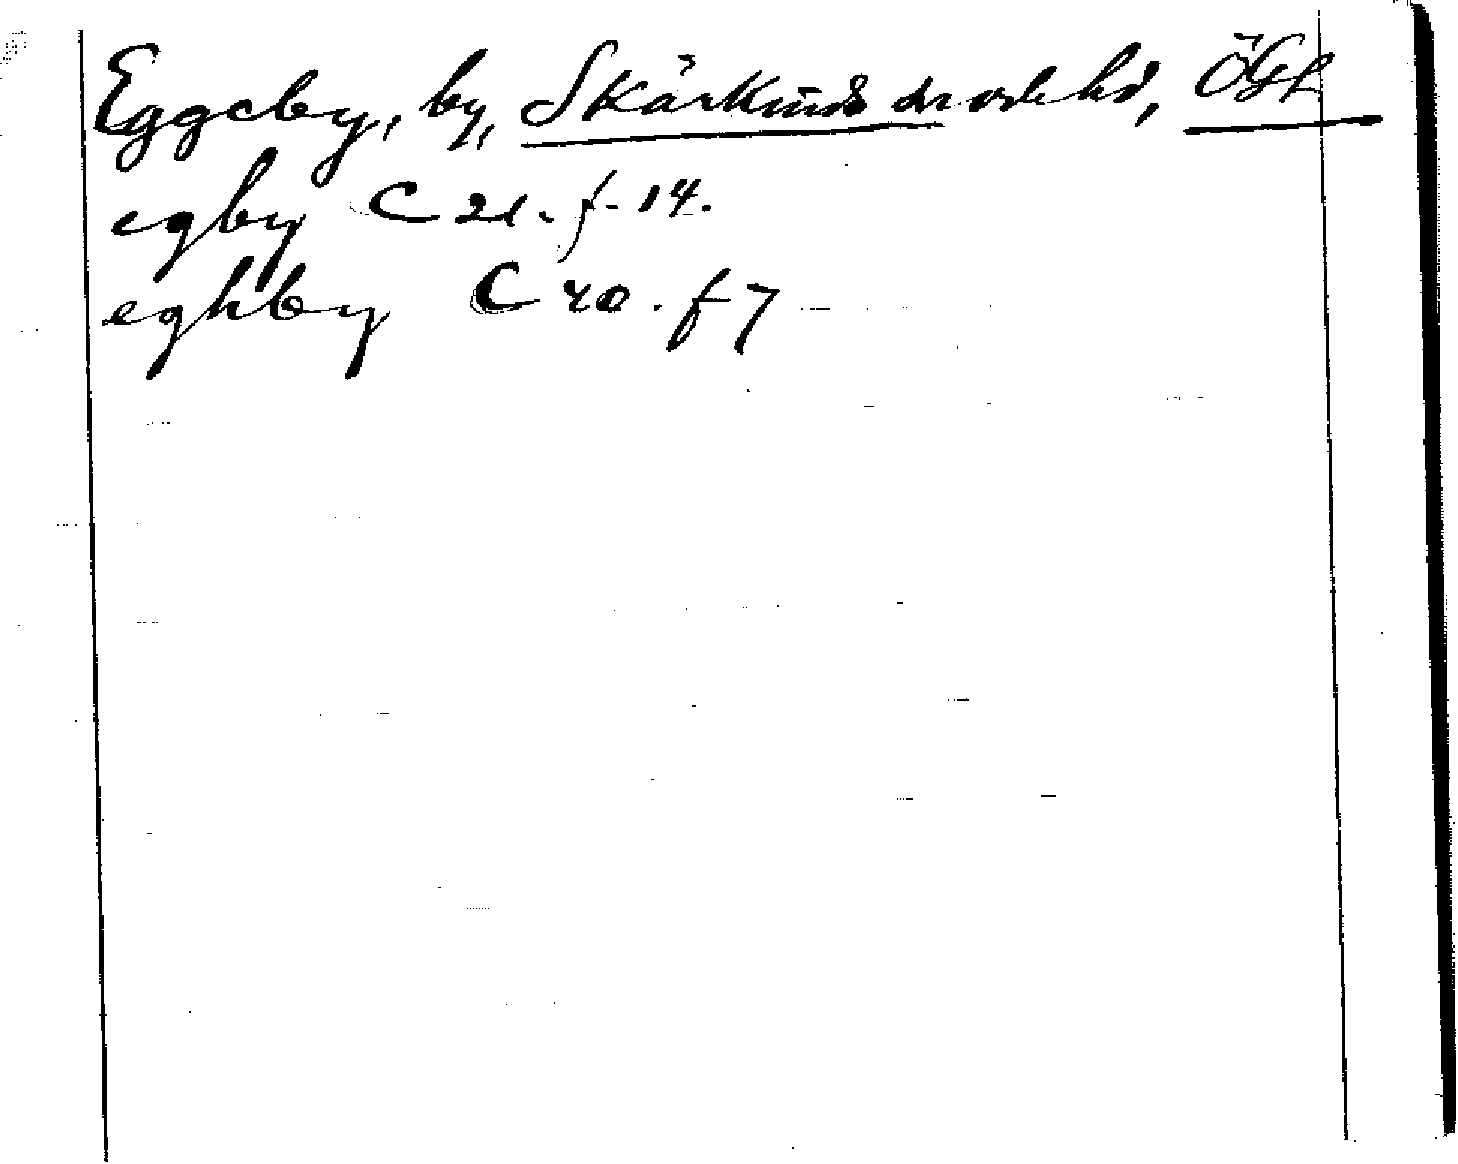 Eggeby, by, Skärkinds sn o. hd, ÖGL
egby C 21. f. 14.
eghby C 20. f 7